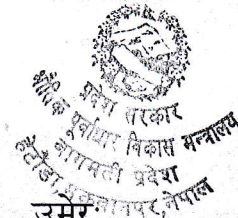 प्रदेश सरकार
भौतिक पूर्वाधार विकास मन्त्रालय
बागमती प्रदेश
हेटौंडा, मकवानपुर, नेपाल
उमेर